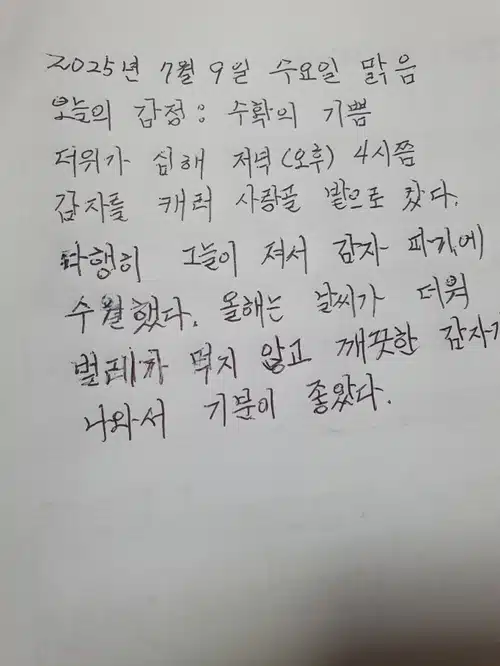 2025년 7월 9일 수요일 맑음
오늘의 감정 : 수확의 기쁨
더위가 심해 저녁(오후) 4시쯤
감자를 캐러 사랑골 밭으로 갔다.
다행히 그늘이 져서 감자 파기에
수월했다. 올해는 날씨가 더워
벌레가 먹지 않고 깨끗한 감자가
나와서 기분이 좋았다.